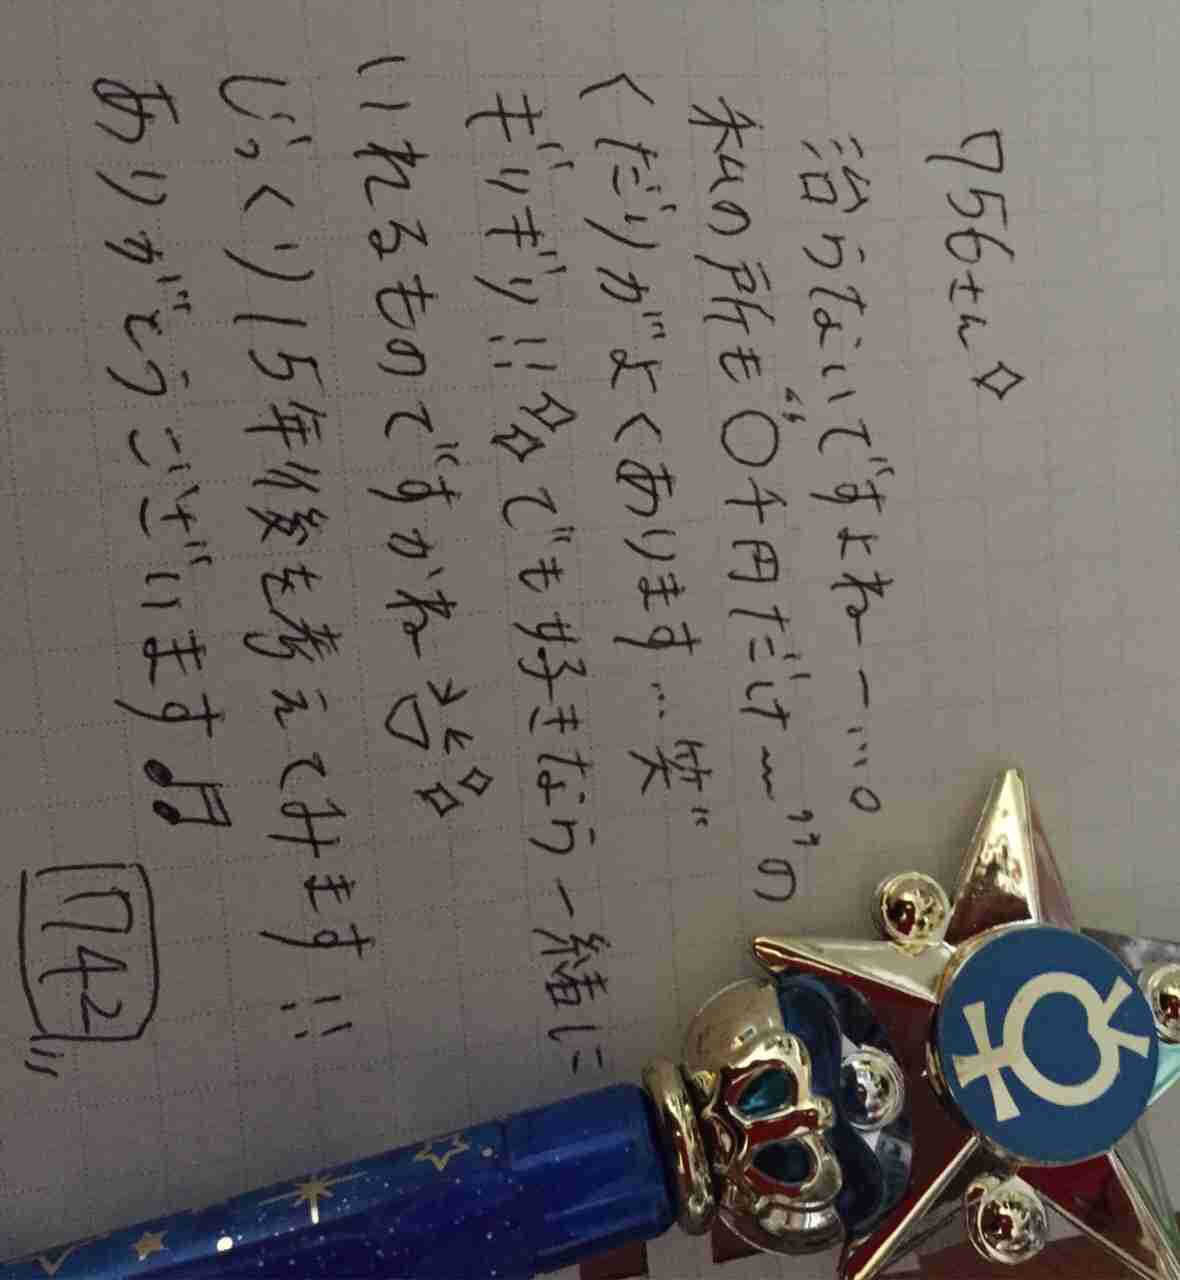 756さん◇
治らないですよねー…。
私の所も“〇千円だけ〜”の
くだりがよくあります…笑”
ギリギリ!!でも好きなら一緒に
いれるものですかね
じっくり15年後を考えてみます!!
ありがとうございます♬
742”